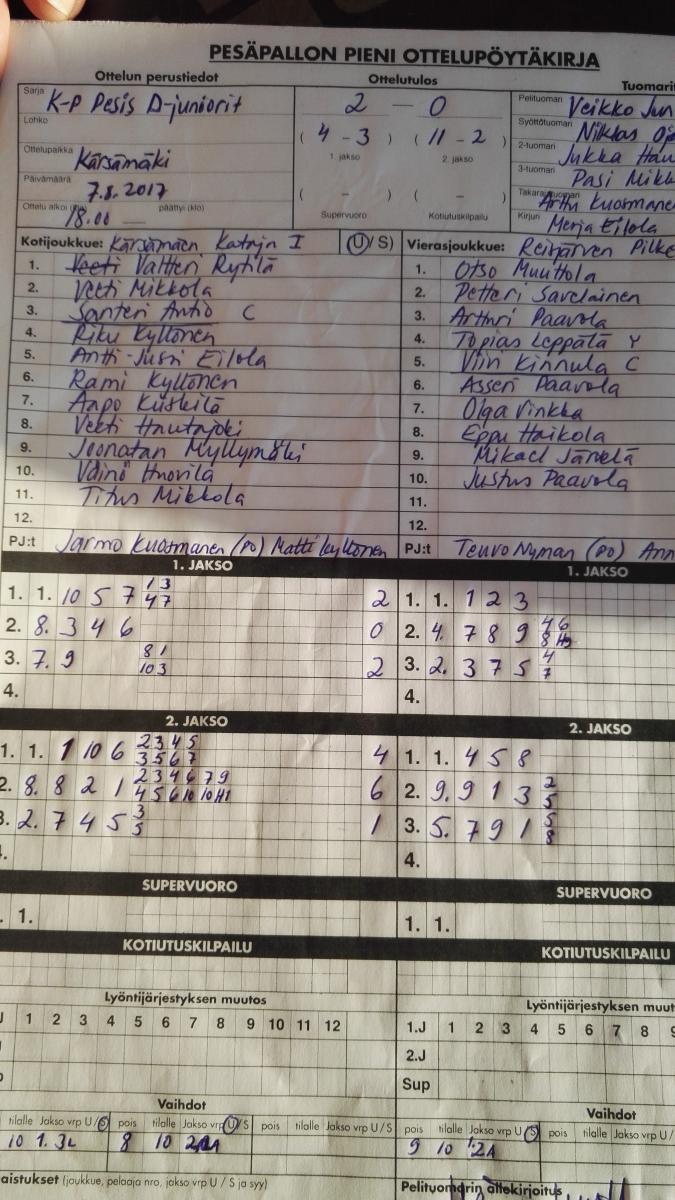 PESÄPALLON PIENI OTTELUPÖYTÄKIRJA
Ottelun perustiedot
Sarja K-P Pesis D-juniorit
Lohko
Ottelupaikka Kärsämäki
Päivämäärä 7.8.2017
Ottelu alkoi 18.00 päättyi (klo)
Ottelutulos
2 – 0
( 4 - 3 ) ( 11 - 2 )
1. jakso 2. jakso
( - ) ( - )
Supervuoro Kotiutuskilpailu
Tuomarit
Pelituomari Veikko Jun
Syöttötuomari Niklas Oj
2-tuomari Jukka Hau
3-tuomari Pasi Mikk
Takarajatuomari Arttu Kuosmane
Kirjuri Merja Eilola
Kotijoukkue: Kärsämäen Katajn I (U/S)
1. Veeti Valtteri Rytilä
2. Veeti Mikkola
3. Santeri Antio C
4. Riku Kyllönen
5. Antti-Jussi Eilola
6. Rami Kyllönen
7. Aapo Kiiskilä
8. Veeti Hautajoki
9. Joonatan Myllymäki
10. Väinö Huovila
11. Titus Mikkola
12.
PJ:t Jarmo Kuosmanen (PO) Matti Kyllönen
Vierasjoukkue: Reisjärven Pilke
1. Otso Muuttola
2. Petteri Savelainen
3. Artturi Paavola
4. Topias Leppälä Y
5. Kinnula C
6. Asseri Paavola
7. Olga Vinkka
8. Eppu Haikola
9. Mikael Järvelä
10. Justus Paavola
11.
12.
PJ:t Teuvo Nyman (PO) Ann
1. JAKSO
1. 1. 10 5 7 1 3 2
4 7
2. 8. 3 4 6 0
3. 7. 9 8 1 2
10 3
4.
1. JAKSO
1. 1. 1 2 3
2. 4. 7 8 9 4 6
8
3. 2. 3 7 5 4
7
4.
2. JAKSO
1. 1. 1 10 6 2 3 4 5 4
3 5 6 7
2. 8. 8 2 1 2 3 4 6 7 9 6
4 5 6 10 10 H1
3. 2. 7 4 5 3 1
5
2. JAKSO
1. 1. 4 5 8
2. 9. 9 1 3 2
5
3. 5. 7 9 1 5
8
4.
SUPERVUORO
1.
SUPERVUORO
1. 1.
KOTIUTUSKILPAILU
KOTIUTUSKILPAILU
Lyöntijärjestyksen muutos
J 1 2 3 4 5 6 7 8 9 10 11 12
Lyöntijärjestyksen muut
1.J 1 2 3 4 5 6 7 8 9
2.J
Sup
Vaihdot
tilalle Jakso vrp U/S pois tilalle Jakso vrp U/S pois tilalle Jakso vrp U/S
10 1. 3L 8 10
Vaihdot
pois tilalle Jakso vrp U/S pois tilalle Jakso vrp U/
9 10 2A
aistukset (joukkue, pelaaja nro, jakso vrp U / S ja syy)
Pelituomarin allekirjoitus